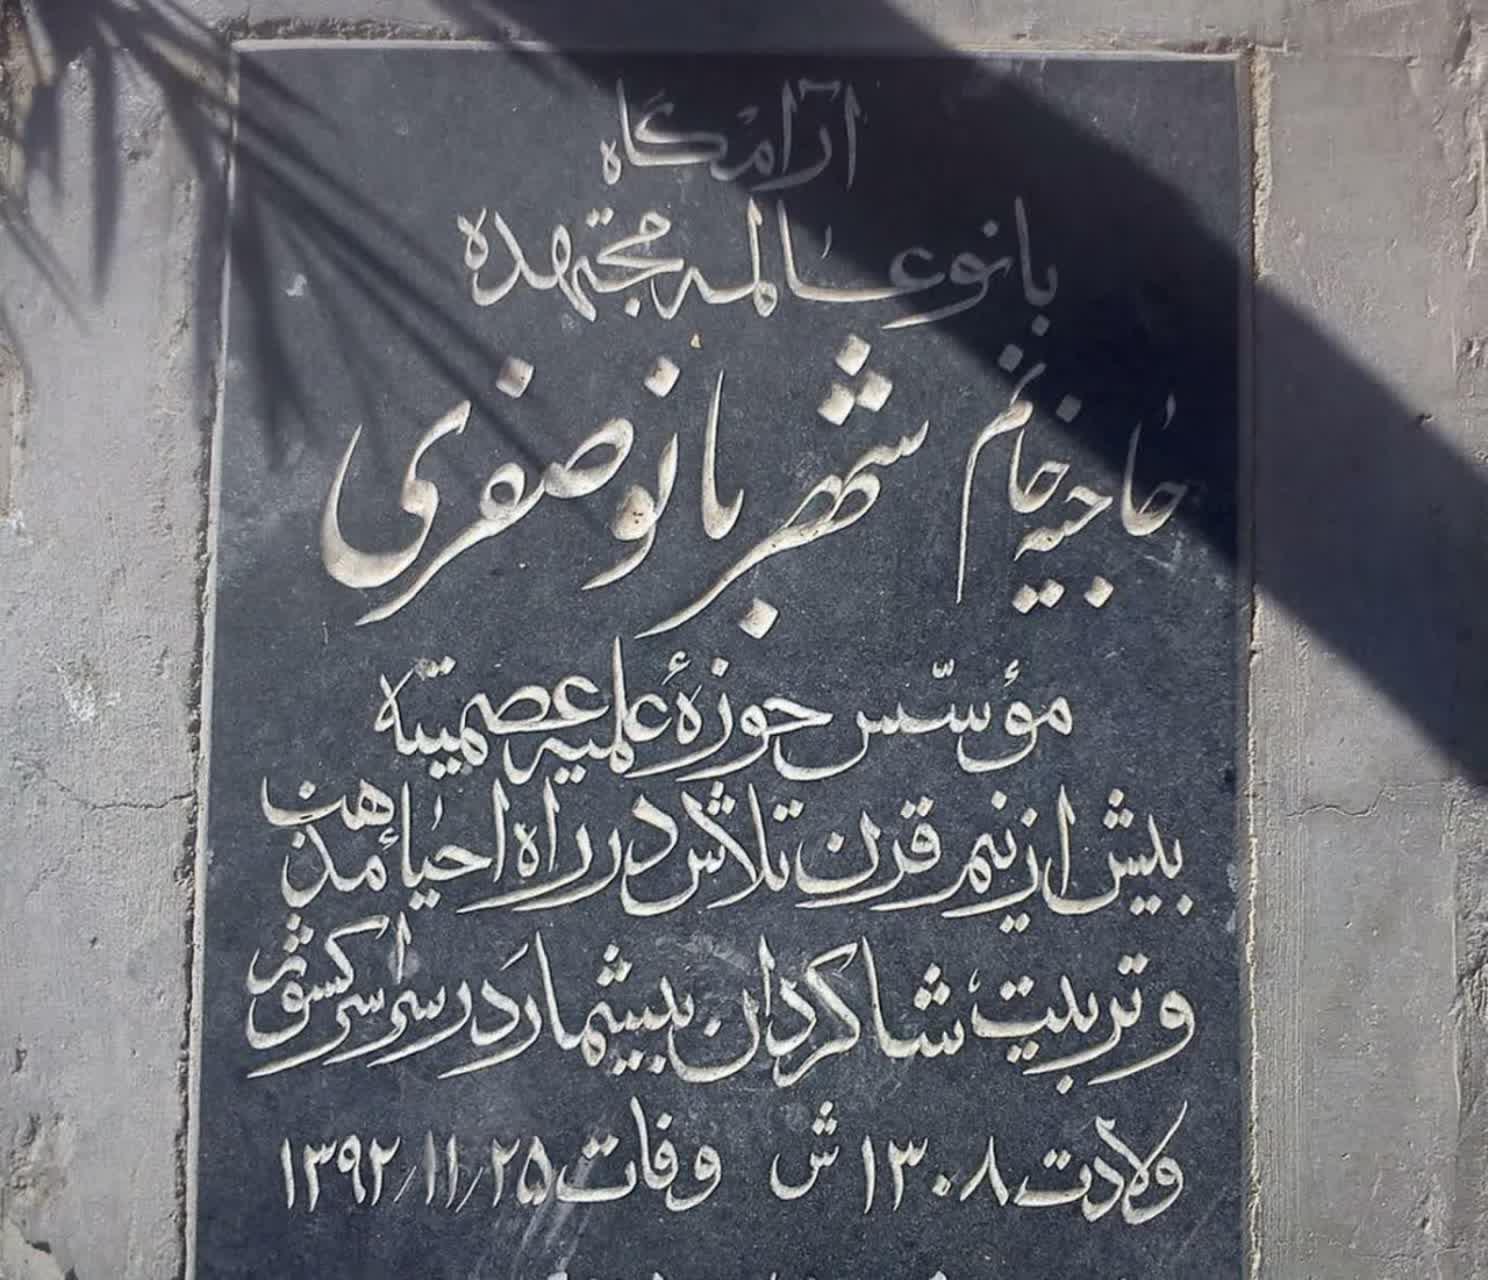 آرامگاه
بانو عالمه مجتهده
حاجیه خانم شهربانو صفری
مؤسّس حوزهٔ علمیه عصمتیه
بیش از نیم قرن تلاش در راه احیاء مذهب
و تربیت شاگردان بیشمار در سراسر کشور
ولادت ۱۳۰۸ ش وفات ۱۳۹۲/۱۱/۲۵